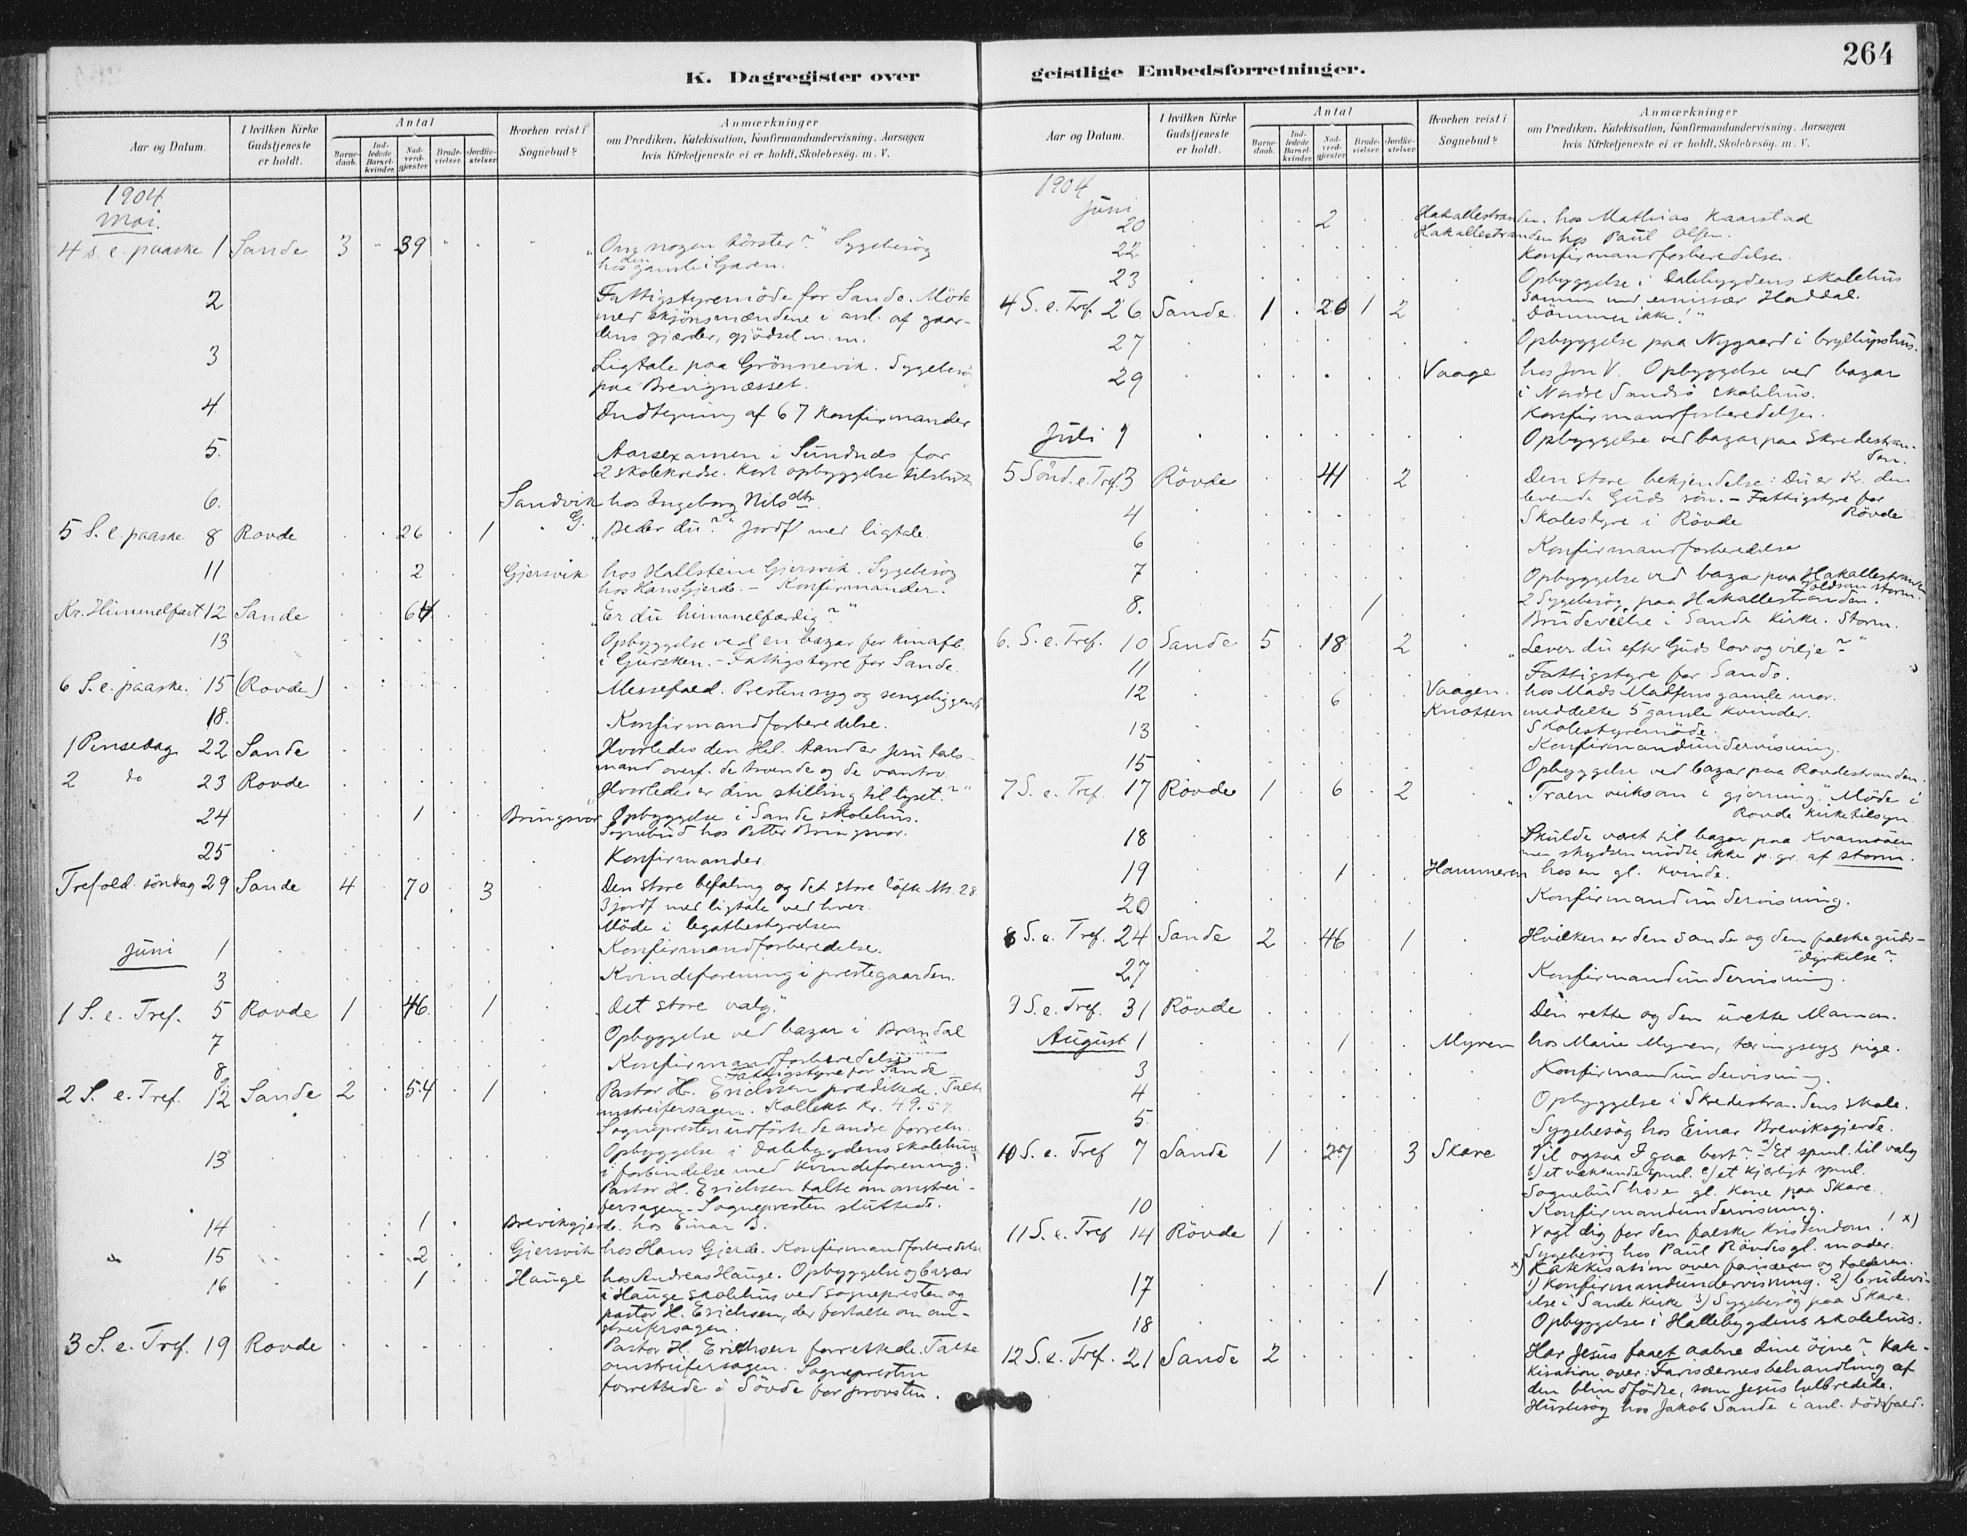 264
K. Dagregister over geistlige Embedsforretninger.
Aar og Datum. | I hvilken Kirke Gudstjeneste er holdt. | Antal | Barnedaab. | Indledede Barselkvinder. | Nadverdgjester | Brudevielser. | Jordfæstelser. | Hvorhen reist i Sognebud? | Anmærkninger om Prædiken, Katekisation, Konfirmandundervisning, Aarsagen hvis Kirketjeneste ei er holdt, Skolebesøg, m. V.
1904
Mai.
4 s. e. paaske 1 Sande 3 39 „Om nogen törster?" Sygebesög
hos den gamle i Garen.
2 Fattigstyremöde for Sande. Möde
med skjönsmændene i anl. af gaar-
dens gjærder, gjödsel m. m.
3 Ligtale paa Grönnevik. Sygebesög
paa Brevignæsset.
4 Indtegning af 67 Konfirmander
5. Aarsexamen i Sundnæs for
2 skolekredse. Kort opbyggelse tilslut
6. Sandvik G. hos Ingeborg Nilsdtr.
5 S. e. paaske 8 Rovde 26 1 „Beder du?" Jordf med ligtale.
11 2 Gjersvik hos Hallstein Gjersvik. Sygebesög
hos Hans Gjerde. – Konfirmander.
Kr. Himmelfart 12 Sande 64 „Er du himmelfærdig?"
13 Opbyggelse ved en bazar for Kinafb.
i Gursken. – Fattigstyre for Sande.
6 S. e. paaske. 15 (Rovde) Messefald. Presten syg og sengeliggende
18. Konfirmandforberedelse.
1 Pinsedag 22 Sande Hvorledes den Hel. Aand er Jesu tals-
mand overf. de troende og de vantro.
2 do 23 Rovde „Hvorledes er din stilling til lyset?"
24 1 Bringsvor Opbyggelse i Sande skolehus.
Sognebud hos Petter Bringsvor.
25 Konfirmander.
Trefold. söndag 29 Sande 4 70 3 Den store befaling og det store löfte Mt. 28
3 jordf med ligtale ved hver.
Möde i legatbestyrelsen
Juni 1 Konfirmandforberedelse.
3 Kvindeforening i prestegaarden.
1 S. e. Tref. 5 Rovde 1 46 1 „Det store valg."
7 Opbyggelse ved bazar i Brandal
8. Konfirmandforberedelse
Fattigstyre for Sande
2 S. e. Tref. 12 Sande 2 54 1 Pastor H. Erichsen prædikede. Talte
omstreifersagen. Kollekt kr. 49.57.
Sognepresten udförte de andre forretn.
13 Opbyggelse i Dalebygdens skolehus
i forbindelse med Kvindeforening.
Pastor H. Erichsen talte om omstrei-
fersagen – Sognepresten sluttede.
14 1 Brevikgjerde. hos Einar B.
15 2 Gjersvik hos Hans Gjerde. Konfirmandforberedelse
16 1 Hauge hos Andreas Hauge. Opbyggelse og bazar
i Hauge skolehus ved sognepresten og
pastor H. Erichsen, der fortalte om om-
streifersagen.
3 S. e. Tref. 19 Rovde Pastor H. Erichsen forrettede. Talte
omstreifersagen. Sognepresten
forrettede i Sövde for provsten.
Aar og Datum. | I hvilken Kirke Gudstjeneste er holdt. | Antal | Barnedaab. | Indledede Barselkvinder. | Nadverdgjester | Brudevielser. | Jordfæstelser. | Hvorhen reist i Sognebud? | Anmærkninger om Prædiken, Katekisation, Konfirmandundervisning, Aarsagen hvis Kirketjeneste ei er holdt, Skolebesøg, m. V.
1904
Juni
20 2 Hakallestranden. hos Mathias Kaarstad
Hakallestranden hos Paul Olsen.
22 Konfirmandforberedelse.
23 Opbyggelse i Dalebygdens skolehus
sammen med emissær Haddal.
4 S. e. Tref. 26 Sande. 1 26 1 2 „Dömmer ikke!"
27 Opbyggelse paa Nygaard i bryllupshus.
29 Vaage hos Jon V. Opbyggelse ved bazar
i Nordre Sandsö skolehus.
Konfirmandforberedelse.
Juli 1 Opbyggelse ved bazar paa Skredestran-
den.
5 Sönd. e. Tref. 3 Rövde 41 2 Den store bekjendelse: Du er K. den
levende Guds sön. – Fattigstyre for
Rövde
4 Skolestyre i Rövde
6 Konfirmandforberedelse
7 Opbyggelse ved bazar paa Hakallestranden
Voldsom storm.
8. 1 2 Sygebesög paa Hakallestranden.
Brudevielse i Sande Kirke. Storm.
6. S. e. Tref. 10 Sande 5 18 2 „Lever du efter Guds lov og vilje?"
11 Fattigstyre for Sande.
12 6 Vaagen. hos Mads Madsens gamle mor.
Knotten meddelte 5 gamle kvinder.
13 Skolestyremöde.
Konfirmandundervisning.
15 Opbyggelse ved bazar paa Rovdestranden.
7 S. e. Tref. 17 Rövde 1 6 2 „Troen virksom i gjerning." Möde i
Rovde Kirketilsyn
18 Skulde været til bazar paa Kvamsöen
men skydsen mödte ikke p. gr. af storm.
19 1 Hammeren hos en gl. kvinde.
20 Konfirmandundervisning.
8 S. e. Tref. 24 Sande 2 46 1 Hvilken er den sande og den falske guds-
dyrkelse?
27 Konfirmandundervisning.
9 S. e. Tref. 31 Rövde Den rette og den urette Mamon.
August 1 1 Myren hos Marie Myren, tæringssyg pige.
3 Konfirmandundervisning.
4 Opbyggelse i Skredestrandens skole.
5. Sygebesög hos Einar Breviksgjerde.
10 S. e. Tref 7 Sande 1 27 3 Skare Vil ogsaa I gaa bort? a) Et spml. til valg
b) et vækkende spml. c) et kjærligt spml.
Sognebud hos en gl. Kone paa Skare.
10 Konfirmandundervisning.
11 S. e. Tref 14 Rövde 1 Vogt dig for den falske kristendom! x)
Sygebesög hos Paul Rövdes gl. moder.
x) Katekisation over farisæeren og tolderen.
17 1 1) Konfirmandundervisning. 2) Brudevi-
else i Sande Kirke 3) Sygebesög paa Skare.
18 Opbyggelse i Hallebygdens skolehus.
12 S. e. Tref. 21 Sande 2 Har Jesus faaet aabne dine öine? Kate-
kisation over: Farisæernes behandling af
den blindfödte, som Jesus helbredede.
Husbesög hos Jakob Sande i anl. dödsfald.